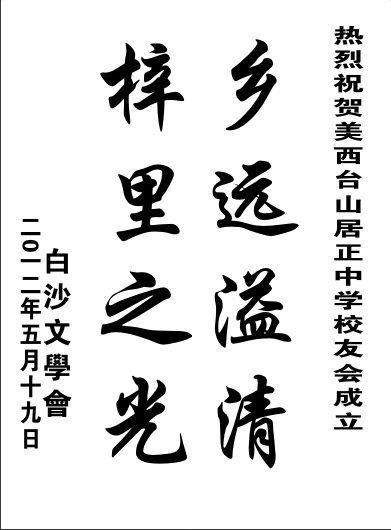 热烈祝贺美西台山居正中学校友会成立
乡远溢清
梓里之光
白沙文學會
二〇一二年五月十九日